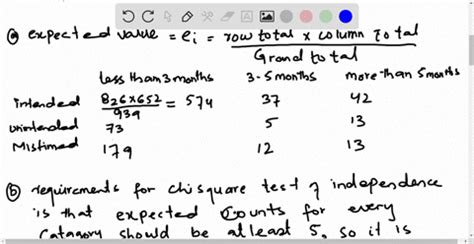 ⓐ expected value = ei = row total x column total
Grand total
less than 3 months 3-5 months more than 5 months
intended 826x652 = 574 37 42
939
unintended 73 5 13
Mistimed 179 12 13
ⓑ requirements for chisquare test of independence
is that expected counts for every
catagory should be atleast 5, so it is